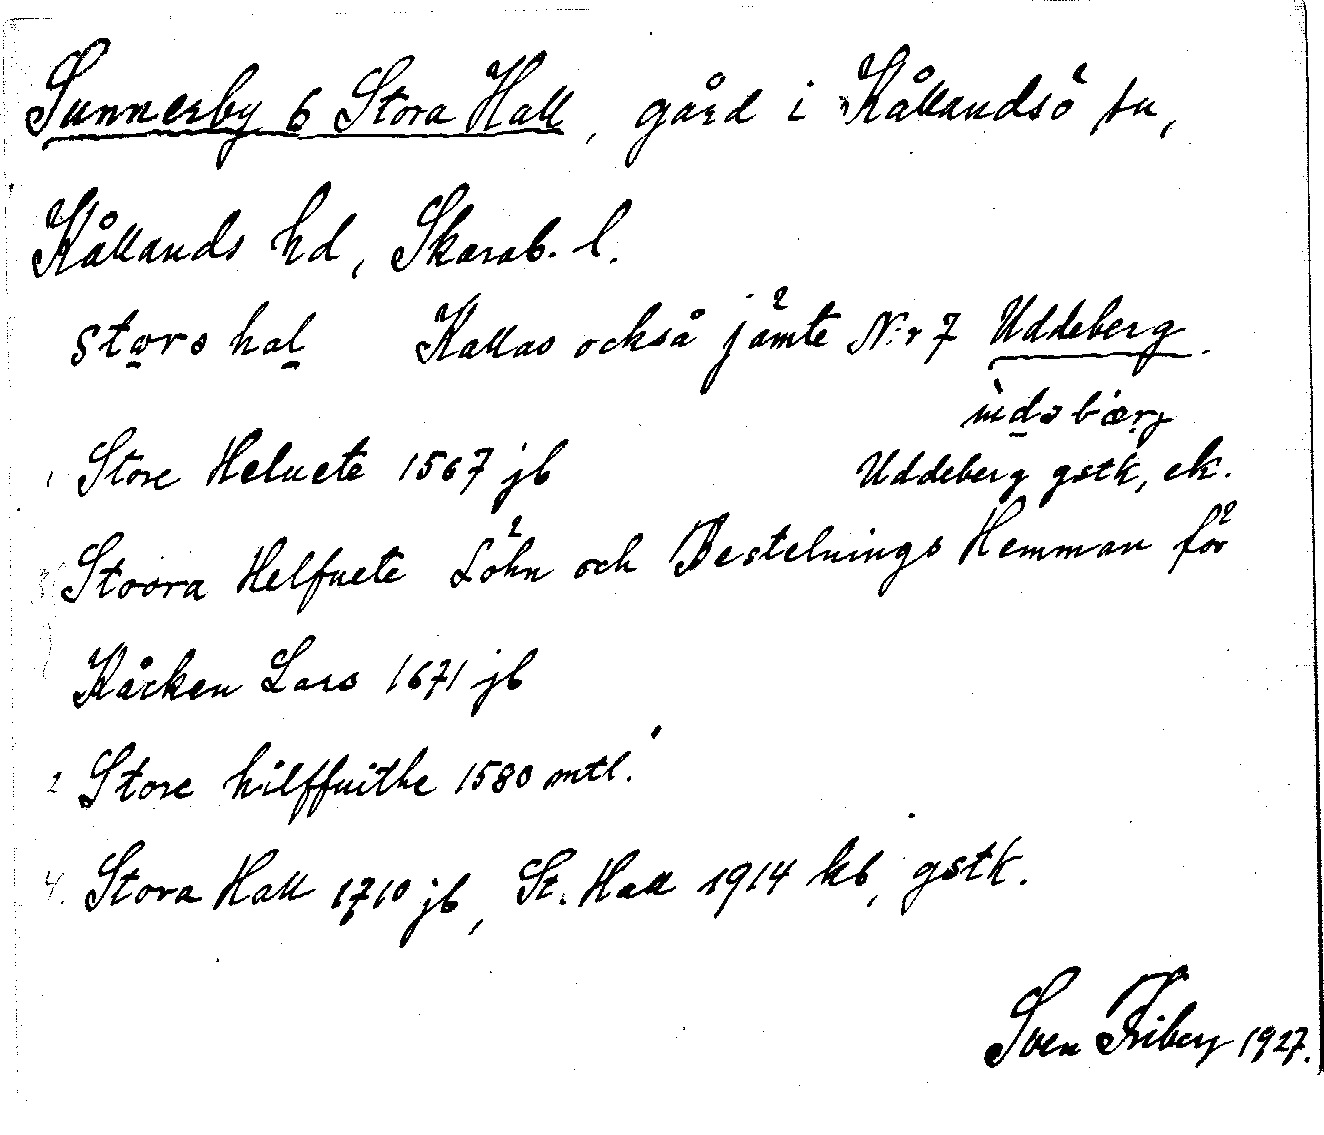 Sunnerby 6 Stora Hall, gård i Kållandsö sn,
Kållands hd, Skarab. l.
storo hal Kallas också jämte N:r 7 Uddeberg.
ùdəbærj
1 Store Heluete 1567 jb Uddeberg gstk, ek.
3 Stoora Helfuete Löhn och Bestelnings Hemman för
Kåcken Lars 1671 jb
2 Store hilffuithe 1580 mtl.
4. Stora Hall 1710 jb, St. Hall 1914 kb, gstk.
Sven Friberg 1927.